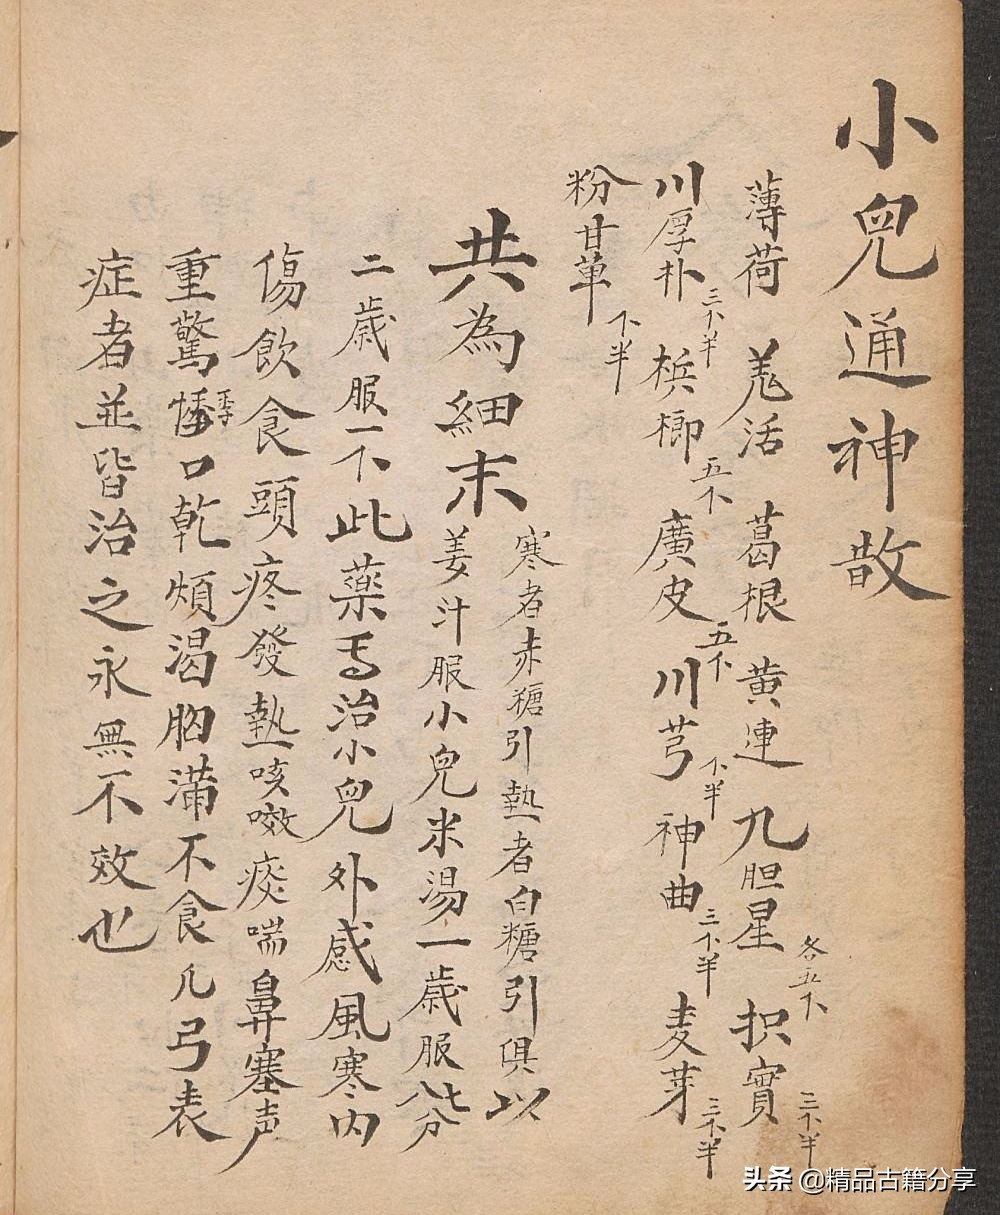 小兒通神散
薄荷 羌活 葛根 黄連 九胆星 各五下 枳實 三下半
川厚朴 三下半 梹榔 五下 廣皮 五下 川芎 下半 神曲 三下半 麦芽 三下半
粉甘草 下半
共為細末 寒者赤糖引熱者白糖引俱以
姜汁服小兒米湯一歲服七八分
二歲服一下此藥㠯治小兒外感風寒内
傷飲食頭疼發熱咳嗽痰喘鼻塞声
重驚悸口乾煩渴胸滿不食几弓表
症者並皆治之永無不效也
头条 @精品古籍分享